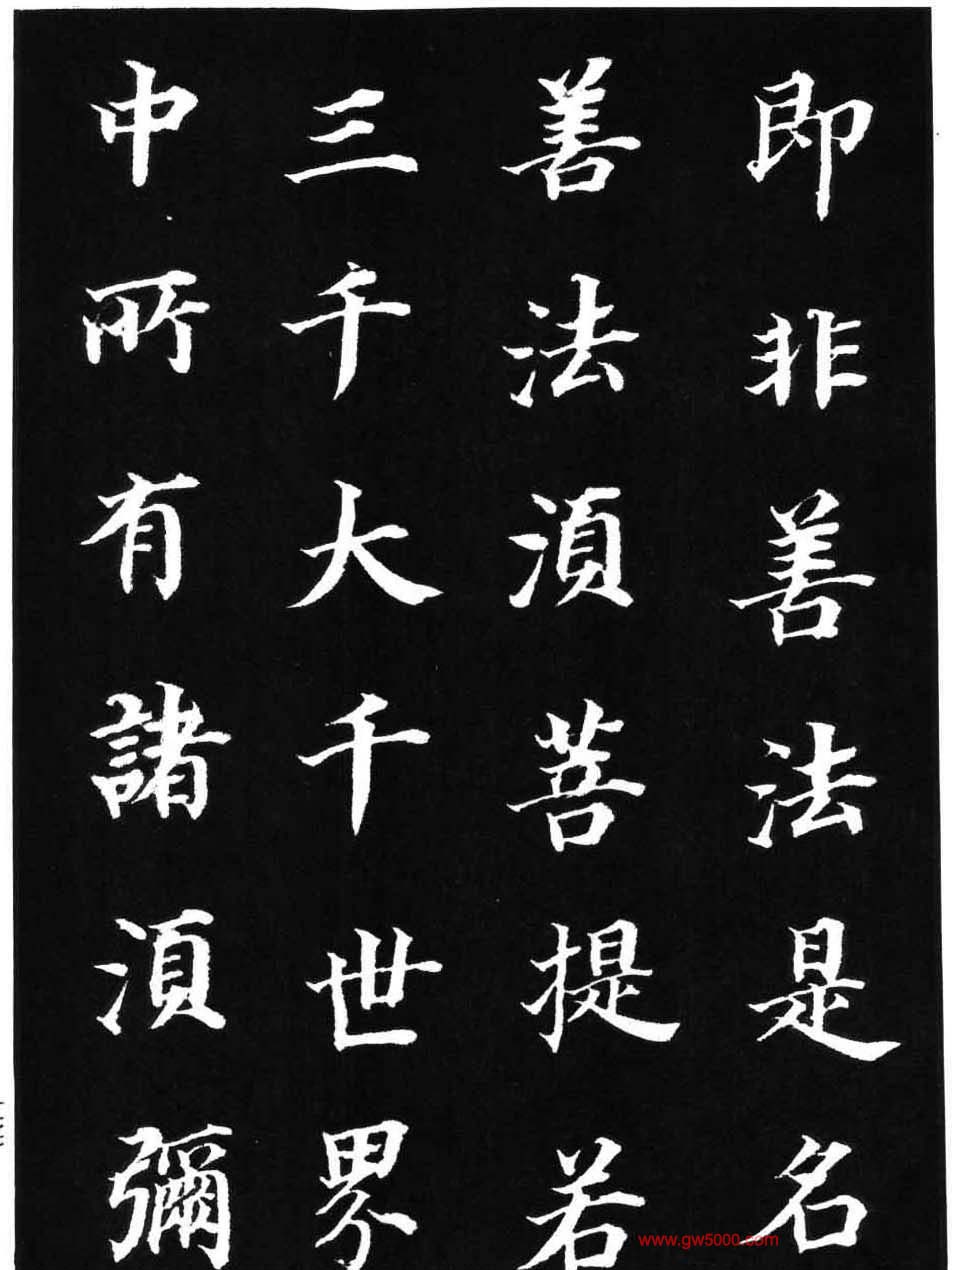 即非善法是名
善法湏菩提若
三千大千世界
中所有諸湏彌
www.gw5000.com